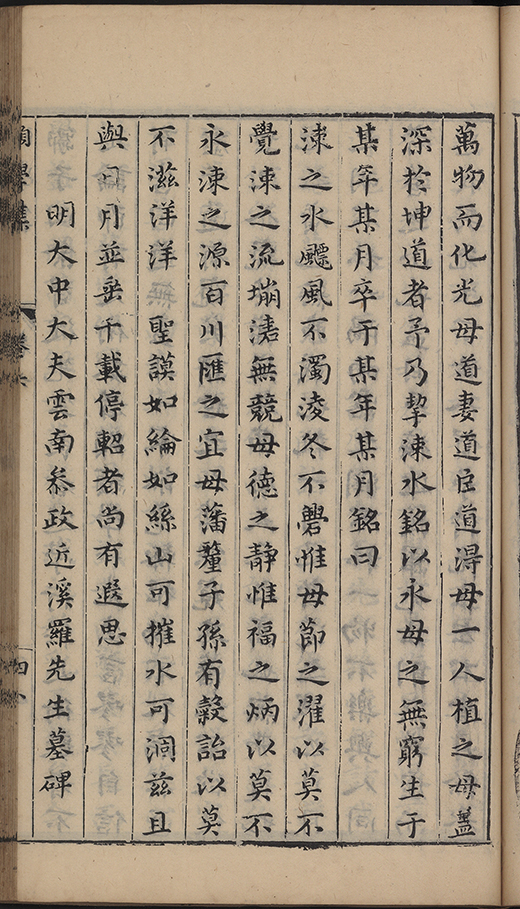 萬物而化光母道妻道臣道淂母一人植之母蓋
深於坤道者予乃挈涑水銘以永母之無窮生于
某年某月卒于某年某月銘曰
涑之水飃風不濁淩冬不礐惟母節之濯以莫不
覺涑之流塴濸無競母德之静惟福之炳以莫不
永涑之源百川匯之宜母藩釐子孫有榖詒以莫
不滋洋洋　聖謨如綸如絲山可摧水可涸兹且
與日月並垂千載停軺者尚有遐思
明大中大夫雲南叅政近溪羅先生墓碑
學集
卷六
四